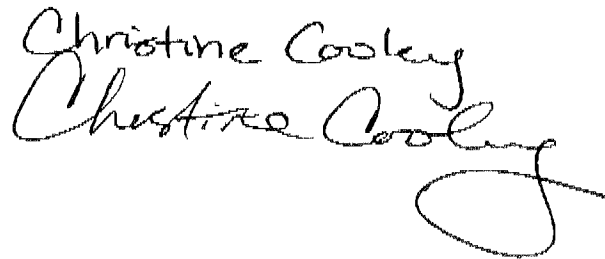 Christine Cooley
Christine Cooley